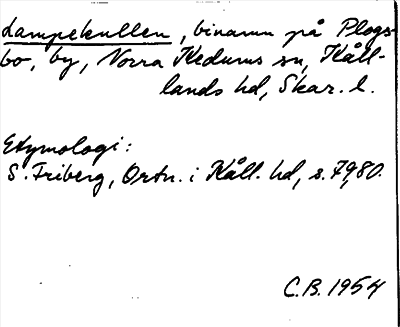 Lampekullen, binamn på Plogs-
bo, by, Norra Kedums sn, Kåll-
lands hd, Skar. l.
Etymologi:
S. Friberg, Ortn. i Kåll. hd, s. 79,80.
C.B. 1954